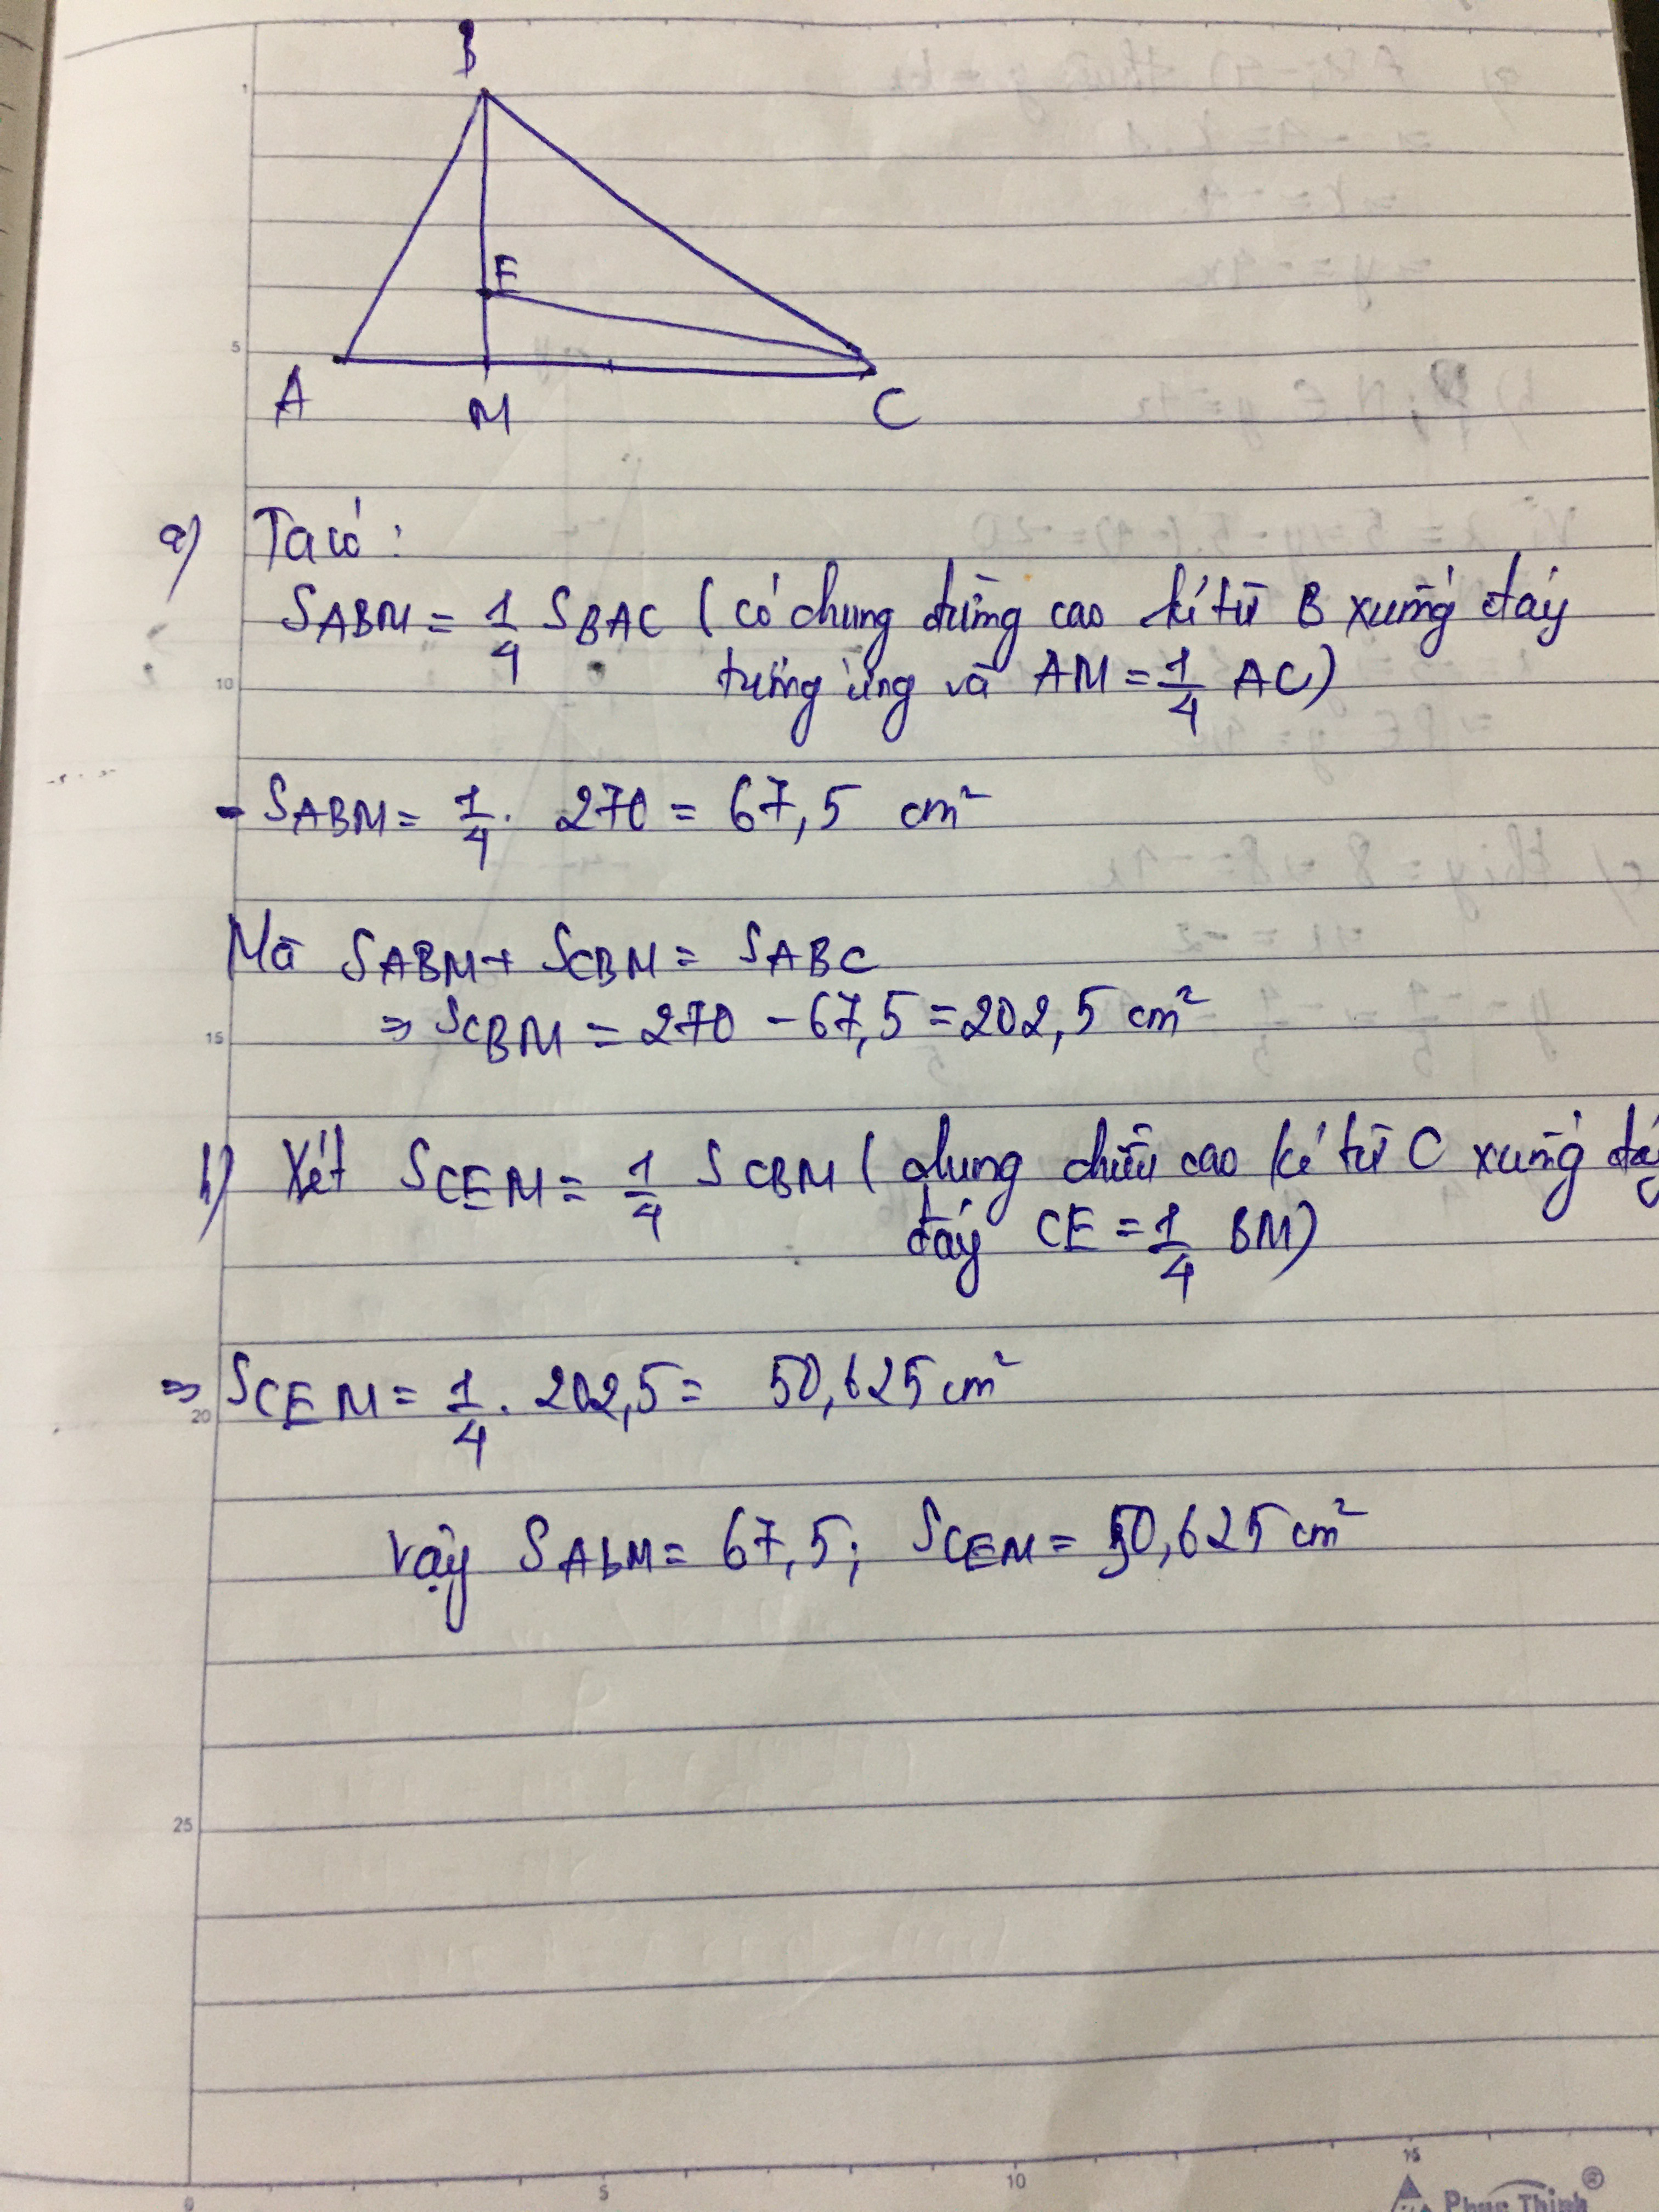 B
E
A M C
a) Ta có:
S ABM = 1/4 S BAC (có chung đường cao kẻ từ B xuống đáy
tương ứng và AM = 1/4 AC)
- S ABM = 1/4 . 270 = 67,5 cm²
Mà S ABM + S CBM = S ABC
⇒ S CBM = 270 - 67,5 = 202,5 cm²
b) Xét S CEM = 1/4 S CBM (chung chiều cao kẻ từ C xuống
đáy CE = 1/4 BM)
⇒ S CEM = 1/4 . 202,5 = 50,625 cm²
Vậy S ABM = 67,5; S CEM = 50,625 cm²
1
5
10
15
20
25
0 5 10 15
Phuc Thinh ®